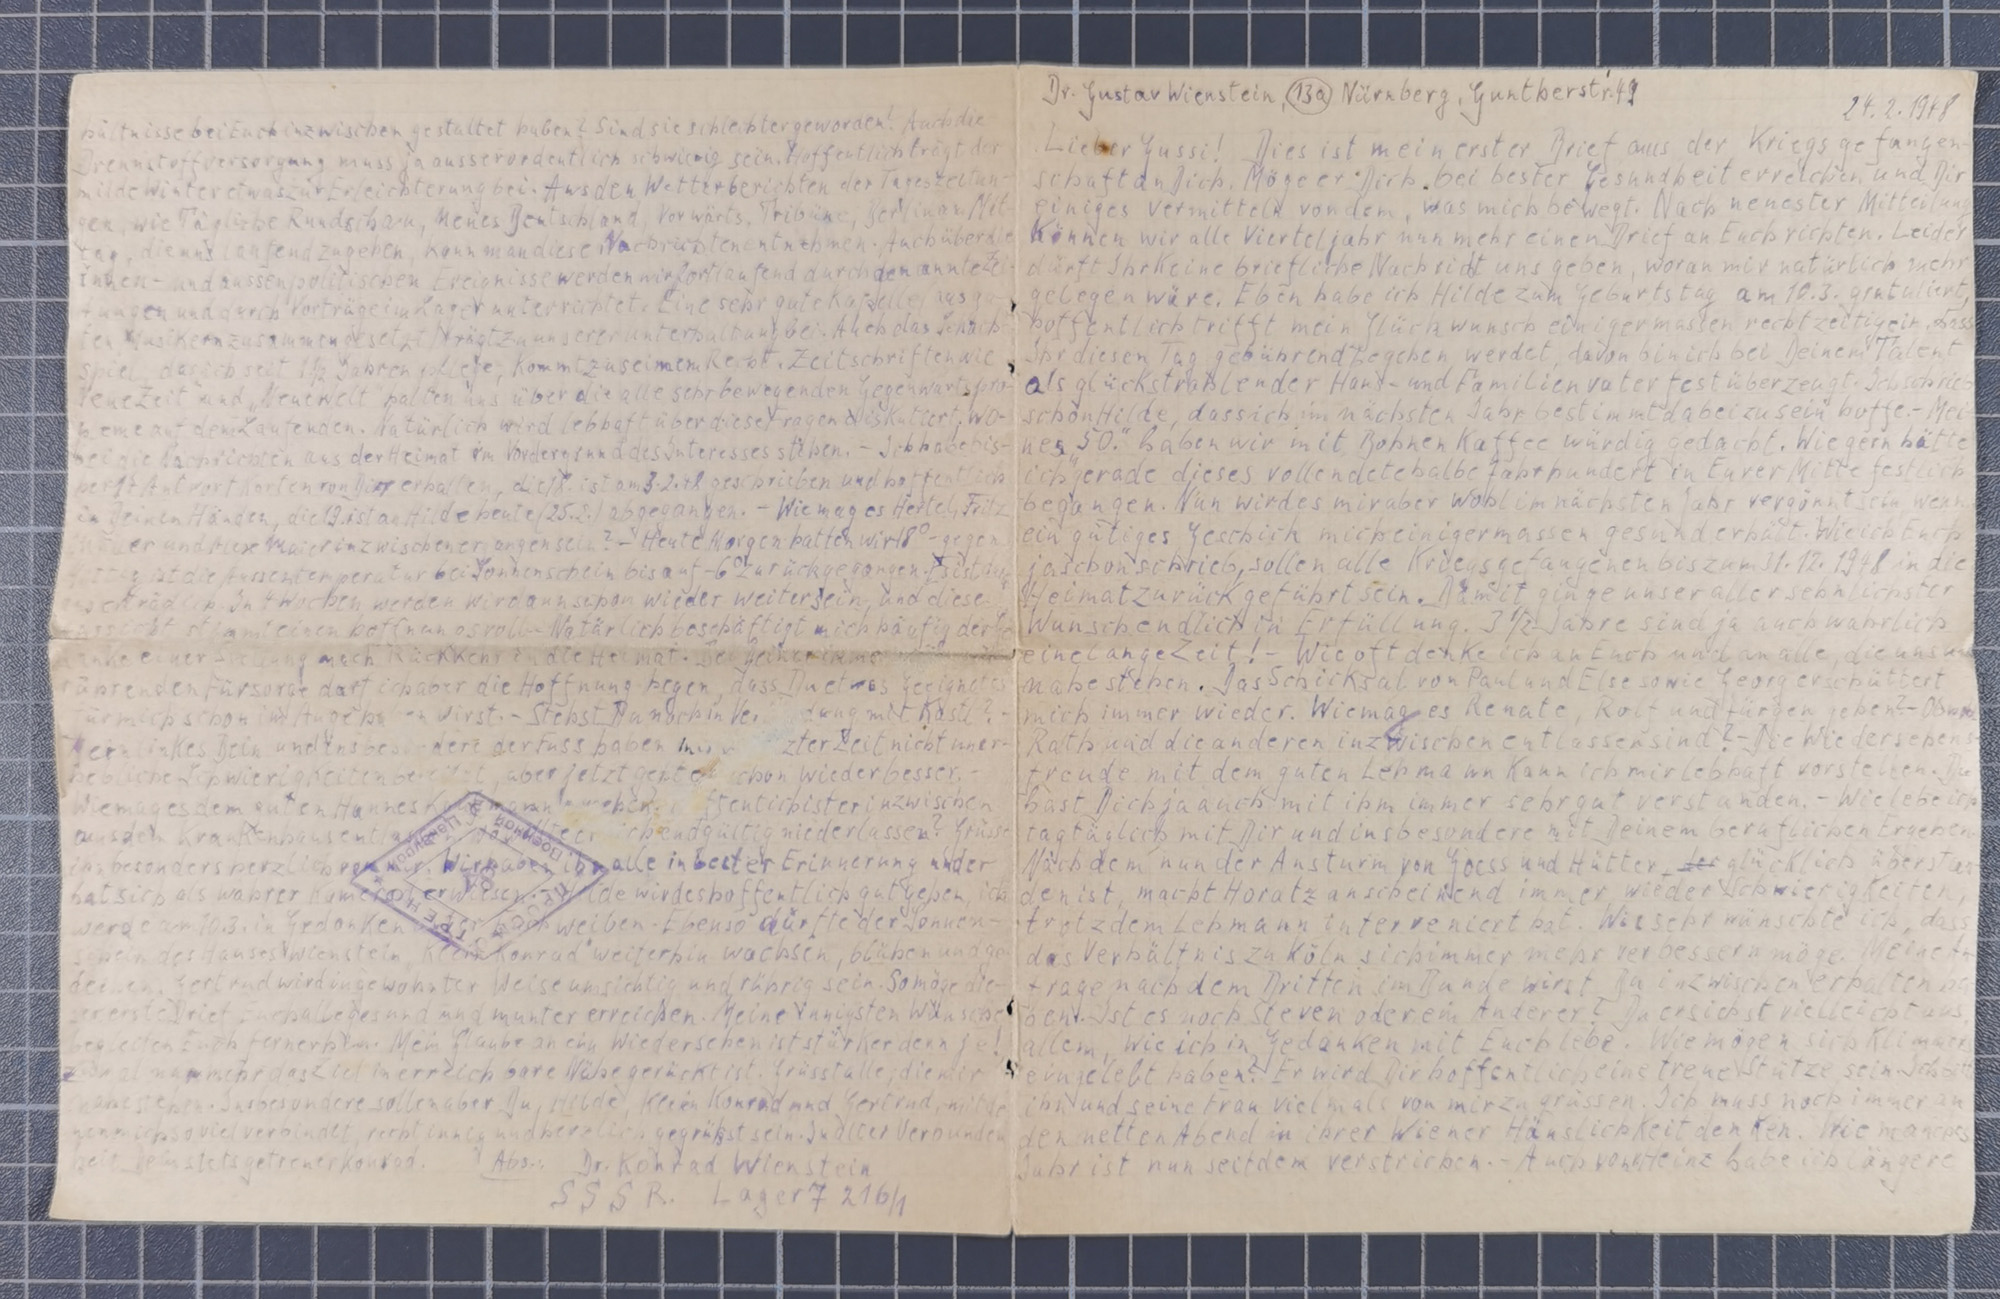 Dr. Gustav Wienstein, (13a) Nürnberg, Guntherstr. 49
24.2.1948
Lieber Gussi! Dies ist mein erster Brief aus der Kriegsgefangen-
schaft an Dich. Möge er Dich bei bester Gesundheit erreichen und Dir
einiges vermitteln von dem, was mich bewegt. Nach neuester Mitteilung
können wir alle Vierteljahr nunmehr einen Brief an Euch richten. Leider
dürft Ihr keine briefliche Nachricht uns geben, woran mir natürlich mehr
gelegen wäre. Eben habe ich Hilde zum Geburtstag am 10.3. gratuliert,
hoffentlich trifft mein Glückwunsch einigermassen rechtzeitig ein. Dass
Ihr diesen Tag gebührend begehen werdet, davon bin ich bei Deinem Talent
als glückstrahlender Haus- und Familienvater fest überzeugt. Ich schrieb
schon Hilde, dass ich im nächsten Jahr bestimmt dabei zu sein hoffe. - Mei-
nes "50." haben wir mit Bohnenkaffee würdig gedacht. Wie gern hätte
ich gerade dieses vollendete halbe Jahrhundert in Eurer Mitte festlich
begangen. Nun wird es mir aber wohl im nächsten Jahr vergönnt sein, wenn
ein gütiges Geschick mich einigermassen gesund erhält. Wie ich Euch
ja schon schrieb, sollen alle Kriegsgefangenen bis zum 31.12.1948 in die
Heimat zurückgeführt sein. Damit ginge unser aller sehnlichster
Wunsch endlich in Erfüllung. 3 1/2 Jahre sind ja auch wahrlich
eine lange Zeit! - Wie oft denke ich an Euch und an alle, die uns
nahestehen. Das Schicksal von Paul und Else sowie Georg erschüttert
mich immer wieder. Wie mag es Renate, Rolf und Jürgen gehen? - Ob
Rath und die anderen inzwischen entlassen sind? - Die Wiedersehens-
freude mit dem guten Lehmann kann ich mir lebhaft vorstellen. Du
hast Dich ja auch mit ihm immer sehr gut verstanden. - Wie lebe ich
tagtäglich mit Dir und insbesondere mit Deinem beruflichen Ergehen.
Nachdem nun der Ansturm von Goess und Hütter glücklich überstan-
den ist, macht Horatz anscheinend immer wieder Schwierigkeiten,
trotzdem Lehmann interveniert hat. Wie sehr wünschte ich, dass
das Verhältnis zu Köln sich immer mehr verbessern möge. Meine An-
frage nach dem Dritten im Bunde wirst Du inzwischen erhalten ha-
ben. Ist es noch Steven oder ein Anderer? Du ersiehst vielleicht aus
allem, wie ich in Gedanken mit Euch lebe. Wie mögen sich
eingelebt haben? Er wird Dir hoffentlich eine treue Stütze sein.
ihn und seine Frau vielmals von mir zu grüssen. Ich muss noch immer an
den netten Abend in ihrer Wiener Häuslichkeit denken. Wie manches
Jahr ist nun seitdem verstrichen. - Auch von Heinz habe ich längere
hältnisse bei Euch inzwischen gestaltet haben? Sind sie schlechter geworden? Auch die
Brennstoffversorgung muss ja ausserordentlich schwierig sein. Hoffentlich trägt der
milde Winter etwas zur Erleichterung bei. Aus den Wetterberichten der Tageszeitun-
gen, wie Tägliche Rundschau, Neues Deutschland, Vorwärts, Tribüne, Berlin am Mit-
tag, die uns laufend zugehen, kann man diese Nachrichten entnehmen. Auch über die
innen- und aussenpolitischen Ereignisse werden wir fortlaufend durch den annte Zei-
tungen und durch Vorträge im Lager unterrichtet. Eine sehr gute Kapelle, aus gu-
ten Musikern zusammengesetzt, trägt zu unserer Unterhaltung bei. Auch das Schach-
spiel, das ich seit 1 1/2 Jahren pflege, kommt zu seinem Recht. Zeitschriften wie
"Neue Zeit" und "Neue Welt" halten uns über die alle sehr bewegenden Gegenwartspro-
bleme auf dem Laufenden. Natürlich wird lebhaft über diese Fragen diskutiert, wo-
bei die Nachrichten aus der Heimat im Vordergrund des Interesses stehen. - Ich habe bis-
her Antwortkarten von Dir erhalten, die ist am 3.2.48 geschrieben und hoffentlich
in Deinen Händen, die 19. ist an Hilde heute (25.2.) abgegangen. - Wie mag es Hertel, Fritz
er und Alex Maier inzwischen ergangen sein? - Heute Morgen hatten wir 18° - gegen
ist die Aussentemperatur bei Sonnenschein bis auf -6° zurückgegangen.
In 4 Wochen werden wir dann schon wieder weiter sein, und diese
stimmt einen hoffnungsvoll. - Natürlich beschäftigt mich häufig der Ge-
danke einer Stellung nach Rückkehr in die Heimat. Bei Deiner
rührenden Fürsorge darf ich aber die Hoffnung hegen, dass Du etwas Geeignetes
für mich schon im Auge haben wirst. - Stehst Du noch in Ver dung mit Köstl? -
Mein linkes Bein und insbesondere der Fuss haben mir zter Zeit nicht uner-
hebliche Schwierigkeiten bereitet, aber jetzt geht es schon wieder besser. -
Wie mag es dem guten Hannes gehen? Hoffentlich ist er inzwischen
aus dem Krankenhaus entla ich endgültig niederlassen? Grüsse
ihn besonders herzlich von mir. Wir haben ihn alle in bester Erinnerung und er
hat sich als wahrer Kamerad erwiesen. - Hilde wird es hoffentlich gut gehen, ich
werde am 10.3. in Gedanken unter Euch weilen. Ebenso dürfte der Sonnen-
schein des Hauses Wienstein, Klein Konrad weiterhin wachsen, blühen und ge-
deihen. Gertrud wird in gewohnter Weise umsichtig und rührig sein. So möge die-
ser erste Brief Euch alle gesund und munter erreichen. Meine innigsten Wünsche
begleiten Euch fernerhin. Mein Glaube an ein Wiedersehen ist stärker denn je!
zumal nunmehr das Ziel in erreichbare Nähe gerückt ist. Grüsst alle, die mir
nahestehen. Insbesondere sollen aber Du, Hilde, Klein Konrad und Gertrud, mit de-
nen mich so viel verbindet, recht innig und herzlich gegrüsst sein. In alter Verbunden-
heit Dein stets getreuer Konrad.
Abs.: Dr. Konrad Wienstein
SSSR. Lager 7 216/1